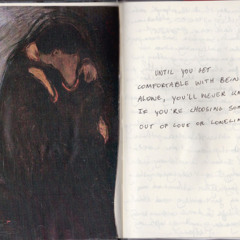 UNTIL YOU GET
COMFORTABLE WITH BEING
ALONE, YOU'LL NEVER
IF YOU'RE CHOOSING
OUT OF LOVE OR